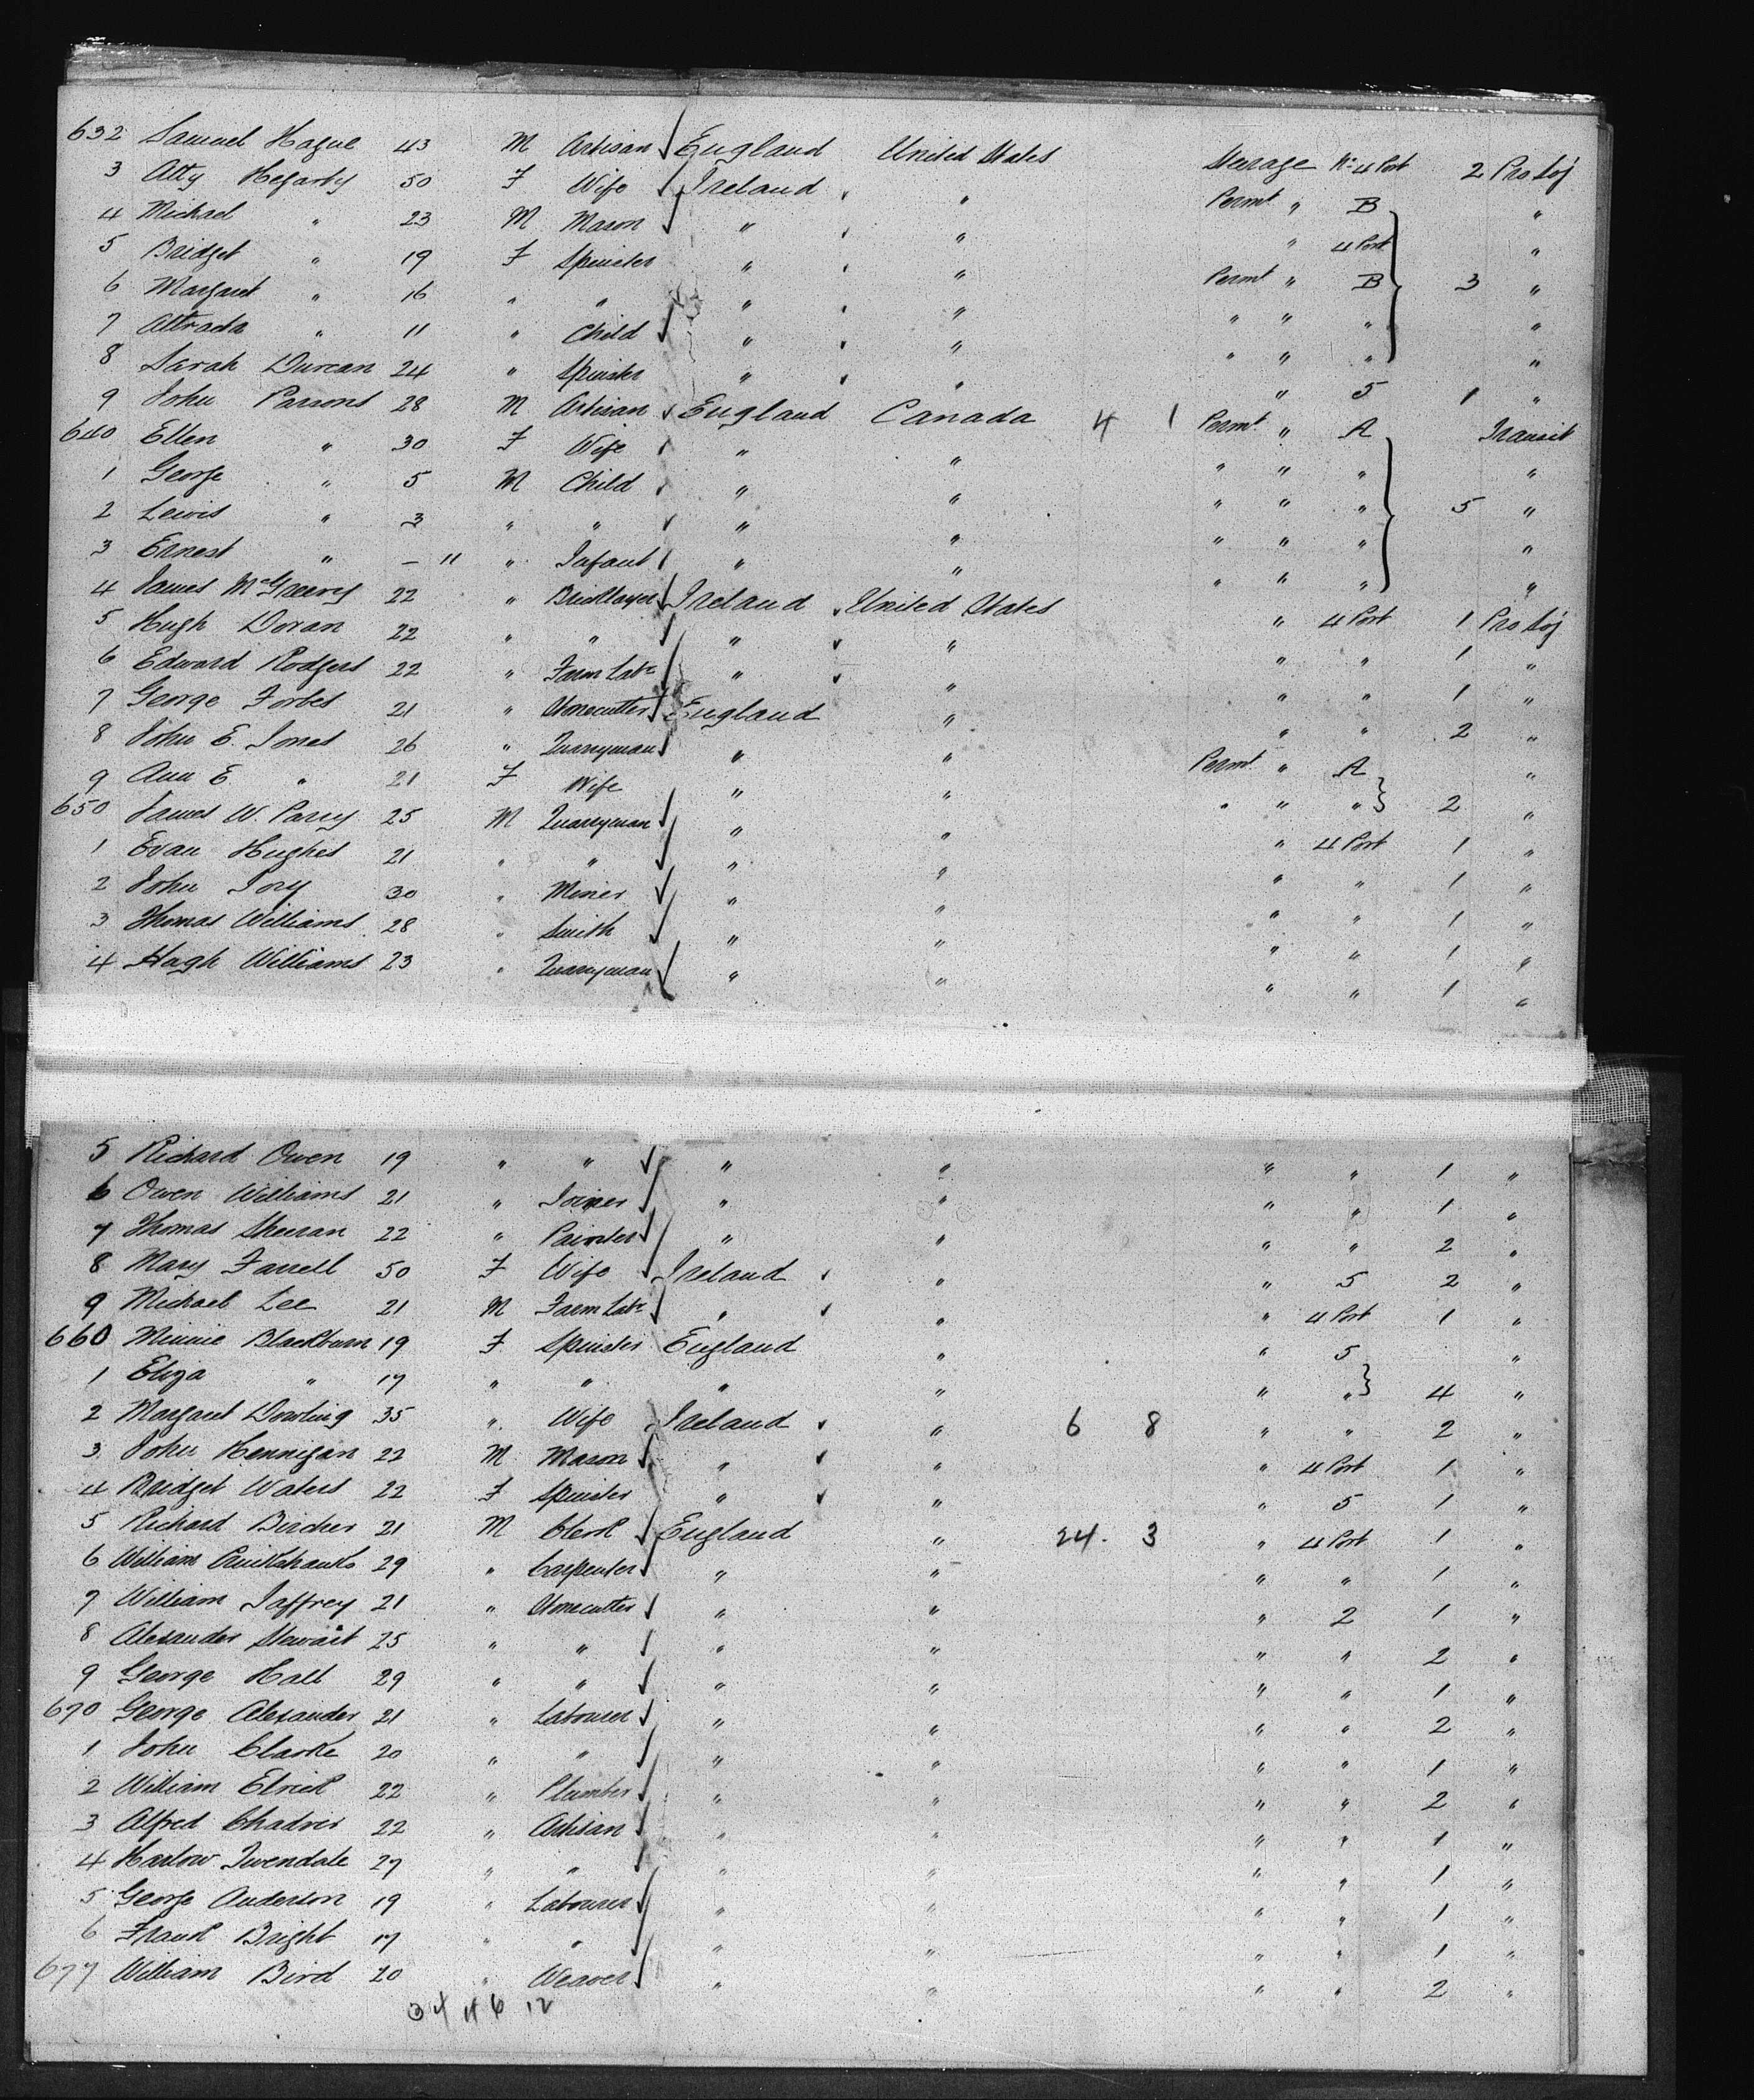 632 Samuel Hague 43 M Artisan England United States Steerage No 4 Port 2 Pro Soj
3 Atty Hegarty 50 F Wife Ireland " Permt " B "
4 Michael " 23 M Mason " " " 4 Port "
5 Bridget " 19 F Spinster " " Permt " B 3 "
6 Margaret " 16 " " " " " " " "
7 " 11 " Child " " " " " "
8 Sarah Durcan 24 " Spinster " " " 5 1 "
9 John Parsons 28 M Artisan England Canada 4 1 Permt " A Transit
640 Ellen " 30 F Wife " " " " " "
1 George " 5 M Child " " " " " 5 "
2 Lewis " 3 " " " " " " " "
3 Ernest " – 11 " Infant " " " " " "
4 James McGreevy 22 " Bricklayer Ireland United States " 4 Port 1 Pro Soj
5 Hugh Doran 22 " " " " " " 1 "
6 Edward Rodgers 22 " Farm Labr " " " " 1 "
7 George Forbes 21 " Stonecutter England " " " 2 "
8 John E. Jones 26 " Quarryman " " Permt " A "
9 Ann E " 21 F Wife " " " " " 2 "
650 James W. Parry 25 M Quarryman " " " 4 Port 1 "
1 Evan Hughes 21 " " " " " " 1 "
2 John 30 " Miner " " " " 1 "
3 Thomas Williams 28 " Smith " " " " 1 "
4 Hugh Williams 23 " Quarryman " " " " 1 "
5 Richard Owen 19 " " " " " " 1 "
6 Owen Williams 21 " Joiner " " " " 1 "
7 Thomas Sheeran 22 " Painter " " " " 2 "
8 Mary Farrell 50 F Wife Ireland " " 5 2 "
9 Michael Lee 21 M Farm Labr " " " 4 Port 1 "
660 Minnie Blackburn 19 F Spinster England " " 5 "
1 Eliza " 17 " " " " " " 4 "
2 Margaret Dowling 35 " Wife Ireland " 6 8 " " 2 "
3 John Hennigan 22 M Mason " " " 4 Port 1 "
4 Bridget Waters 22 F Spinster " " " 5 1 "
5 Richard Bircher 21 M Clerk England " 24. 3 " 4 Port 1 "
6 William Cruikshanks 29 " Carpenter " " " " 1 "
7 William Jaffrey 21 " Stonecutter " " " 2 1 "
8 Alexander Stewart 25 " " " " " " 2 "
9 George Hall 29 " " " " " " 1 "
670 George Alexander 21 " Labourer " " " " 2 "
1 John Clarke 20 " " " " " " 1 "
2 William Elrick 22 " Plumber " " " " 2 "
3 Alfred 22 " Artisan " " " " 1 "
4 Harlow 27 " " " " " " 1 "
5 George Anderson 19 " Labourer " " " " 1 "
6 Frank Bright 17 " " " " " " 1 "
677 William Bird 20 " Weaver " " " " 2 "